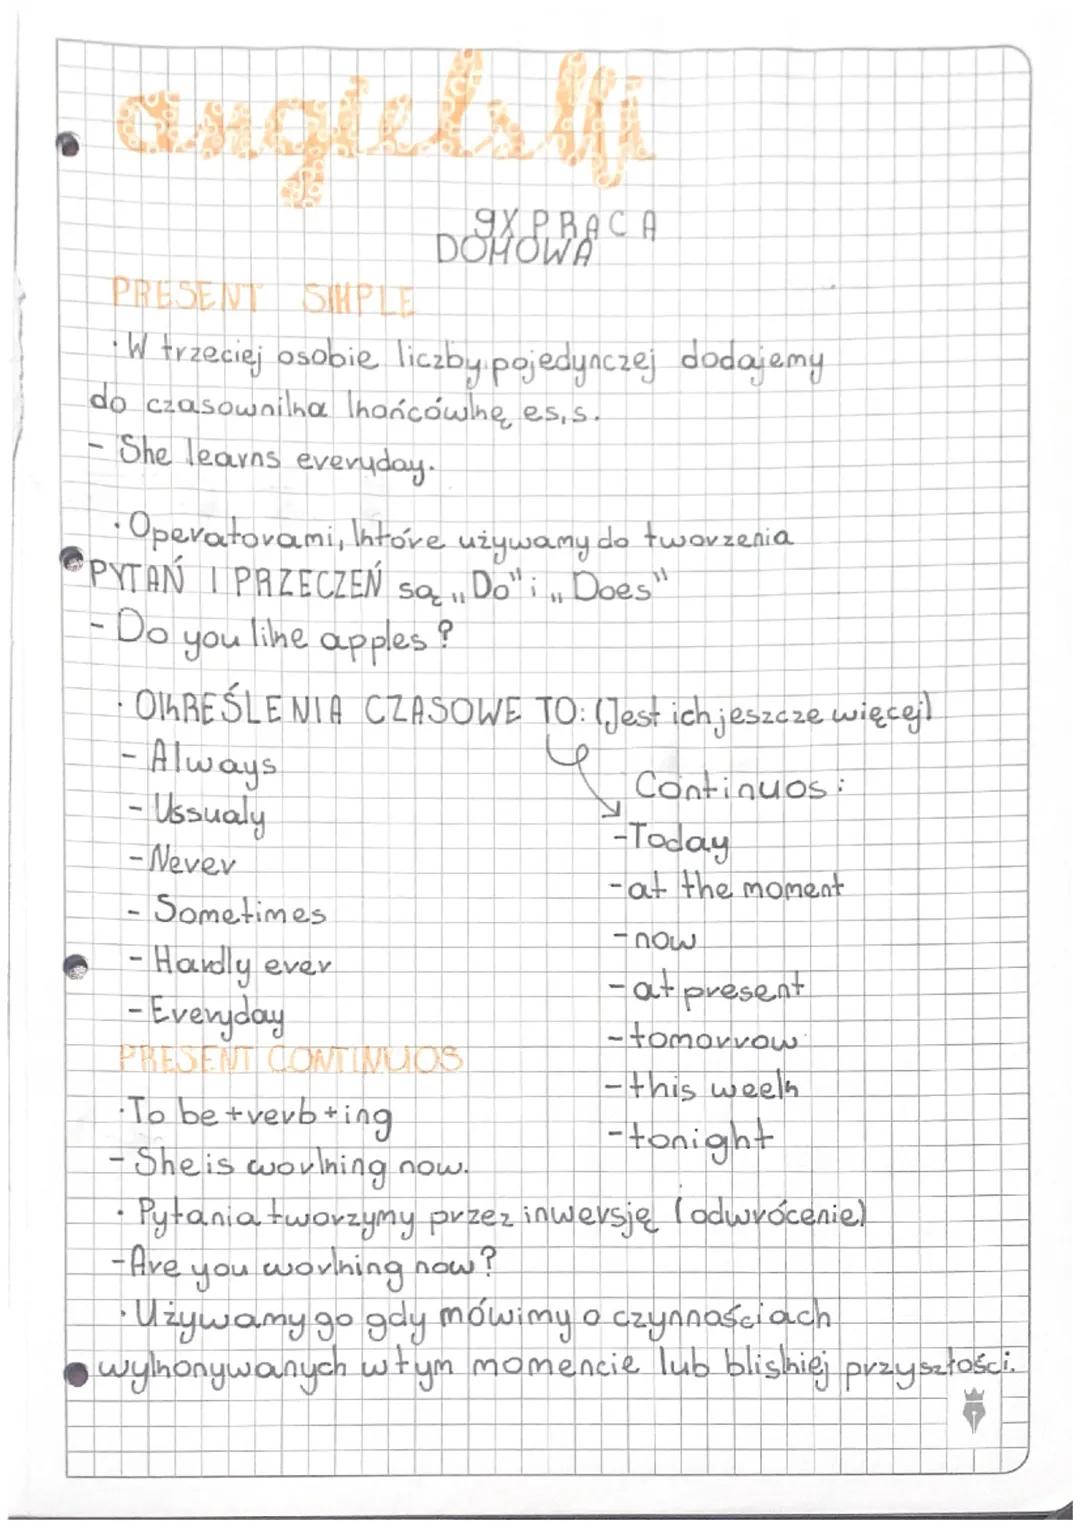 angielski
9X PRACA
DOMOWA
PRESENT SIMPLE
· W trzeciej osobie liczby pojedynczej dodajemy
do czasownika końcówkę es, s.
- She learns everyday.
· Operatorami, które używamy do tworzenia
PYTAŃ I PRZECZEŃ są „Do" i „Does"
- Do you like apples?
· OKREŚLENIA CZASOWE TO: (Jest ich jeszcze więcej)
- Always
- Ussualy
- Never
- Sometimes
- Hardly ever
- Everyday
Continuos:
- Today
- at the moment
- now
- at present
- tomorrow
- this week
- tonight
PRESENT CONTINUOS
· To be + verb + ing
- She is working now.
· Pytania tworzymy przez inwersję (odwrócenie)
- Are you working now?
· Używamy go gdy mówimy o czynnościach
wykonywanych w tym momencie lub bliskiej przyszłości.